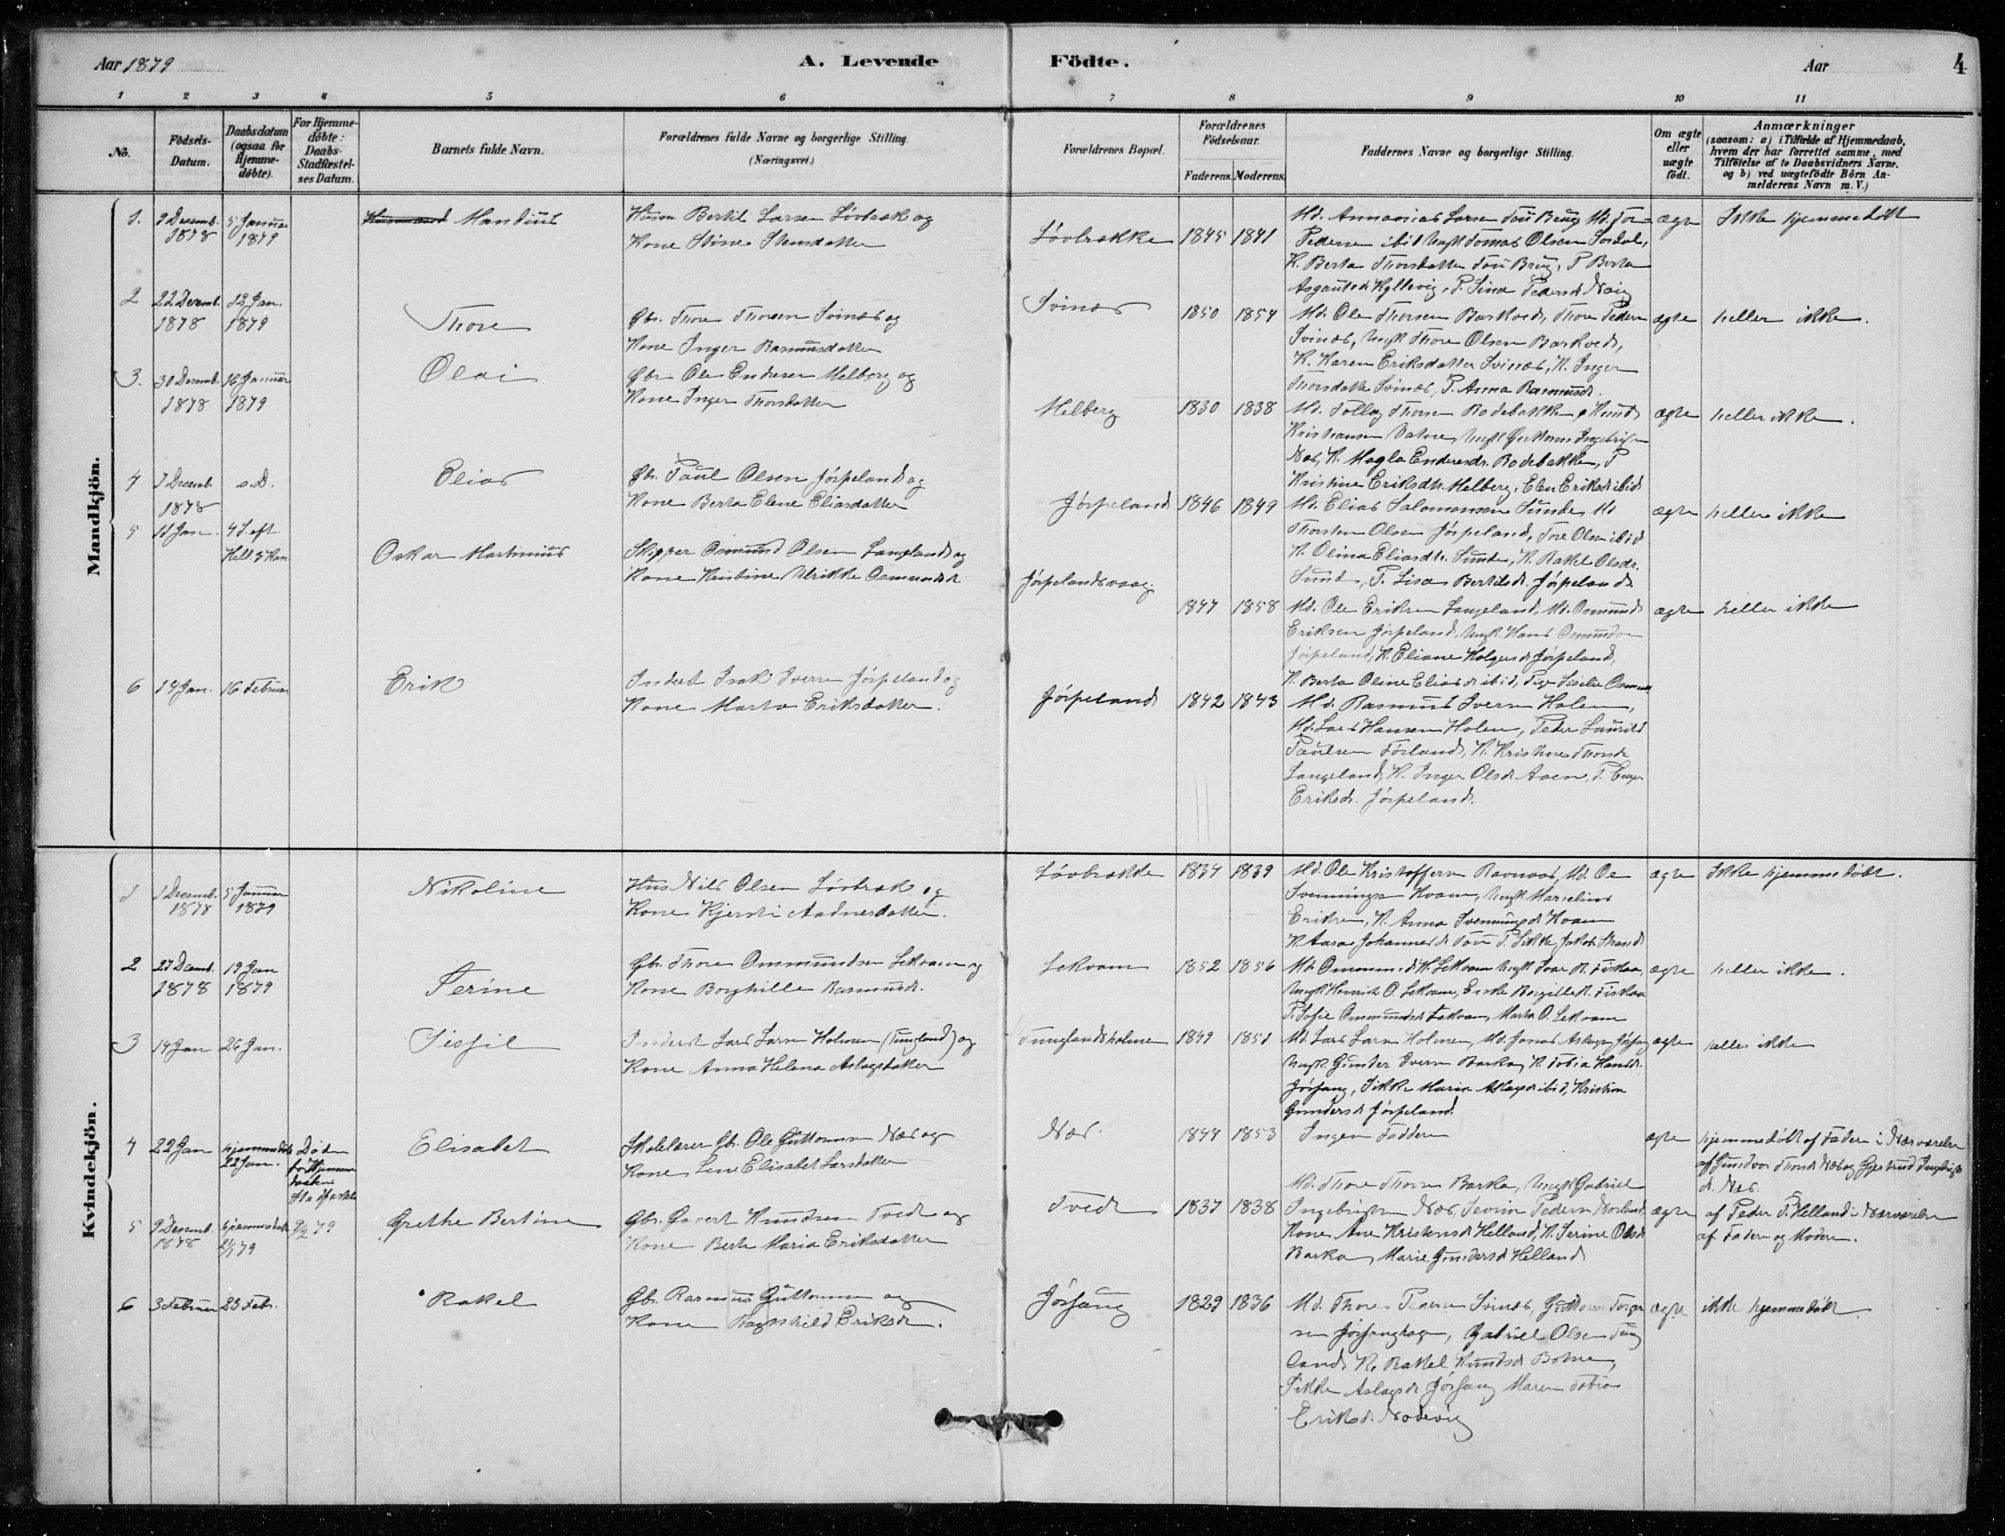 Aar 1879
A. Levende Födte.
Aar
4
1 2 3 4 5 6 7 8 9 10 11
No.
Födsels-Datum.
Daabsdatum (ogsaa for Hjemme-döbte).
For Hjemme-döbte: Daabs-Stadfæstel-ses Datum.
Barnets fulde Navn.
Forældrenes fulde Navne og borgerlige Stilling. (Næringsvei.)
Forældrenes Bopæl.
Forældrenes Födselsaar.
Faderens. Moderens.
Faddernes Navne og borgerlige Stilling.
Om ægte eller uægte födt.
Anmærkninger
(saasom: a) i Tilfælde af Hjemmedaab, hvem der har forrettet samme, med Tilföielse af to Daabsvidners Navne, og b) ved uægtefödte Börn An-melderens Navn m. V.)
Mandkjön.
1. 9 Decemb. 1878 5 Januar 1879
Mandius
Husm Bertil Larsen Løvbræk og
Kone Stine Stensdatter
Løvbrække 1845 1841
Md. Annanias Larsen Tou Brug Md. Tore
Pedersen ibid Ungk Tomas Olsen
K. Berta Thorsdatter Tou Brug, P Berta
ægte Ikke hjemmedøbt
2 22 Decemb. 1878 12 Jan. 1879
Thore
Gbr. Thore Thorsen Svinæs og
Kone Inger Rasmusdatter
Svinæs 1850 1854
Md. Ole Thorsen Barkved, Thore Pedersen
Svinæs, Ungk Thore Olsen Barkved,
K. Karen Eriksdatter Svinæs, K. Inger
Thorsdatter Svinæs, P. Anna Rasmusd.
ægte heller ikke.
3. 30 Decemb. 1878 16 Januar 1879
Olai
Gbr Ole Endresen Melberg og
Kone Inger Thorsdatter
Melberg 1830 1838
Md. Tollag Thorsen Bodebakken,
Kristiansen Vatne, Ungk Guttorm Ingebrigtsen
Næs, K. Magla Endresdr. Bodebakken, P
Kristine Eriksdtr. Melberg, Elen Eriksd ibid
ægte heller ikke.
4 7 Decemb 1878 s.D.
Elias
Gbr. Paul Olsen Jørpeland og
Kone Berta Elene Eliasdatter
Jørpeland 1846 1849
Md. Elias Salomonsen Sunde, Md
Thorsten Olsen Jørpeland, Tore Olsen ibid
K. Olina Eliasdtr. Sunde, K. Rakel Olsdr.
Sunde, P. Lisa Bertilsd. Jørpeland.
ægte heller ikke
5 11 Jan. 4 S. eft Hell 3 Kon.
Oskar Martinius
Skipper Osmund Olsen Langeland og
Kone Kristine Ulrikke Osmundsd.
Jørpelandsvaag. 1847 1858
Md. Ole Eriksen Langeland, Md. Osmund
Eriksen Jørpeland, Ungk. Hans Osmundsen
Jørpeland, K. Eliane Holgersd Jørpeland,
K. Berta Oline Eliasd ibid,
ægte heller ikke
6 14 Jan. 16 Februar
Erik
Inderst Isak Iversen Jørpeland og
Kone Marta Eriksdatter.
Jørpeland 1842 1843
Md. Rasmus Iversen Holen,
Md. Lars Hansen Holen, Peder Laurits
Paulsen Førland, K. Kristine Thorsd
Langeland, K. Inger Olsd Aaen, P. Inger
Eriksd. Jørpeland.
Kvindekjön.
1 1 Decemb. 1878 5 Januar 1879
Nikoline
Hus Nils Olsen Løvbræk og
Kone Kjersti Aadnesdatter.
Løvbrække 1834 1839
Md. Ole Kristoffersen Ravnaas, Md. Ole
Svenningsen Kvam, Ungk Marselius
Eriksen, K. Anna Svenningsd Kvam
K Aasa Johannesd Tou P. Sikke Jakobs. Strand
ægte Ikke hjemmedøbt.
2 27 Decemb. 1878 19 Jan 1879
Serine
Gbr. Thore Ommundsen Lekvam og
Kone Borghille Rasmusd.
Lekvam 1852 1856
Md. Ommund H. Lekvam Ungk Ivar R. Fiskaa,
Ungk Henrik O. Lekvam, Enke Borgille R. Fiskaa
P. Sofie Ommundsd Lekvam, Marta O. Lekvam
ægte heller ikke.
3 14 Jan 26 Jan.
Sissil
Inderst Lars Larsen Holmen (Tungland) og
Kone Anna Helena Aslagsdatter
Tunglandsholmen 1849 1851
Md Lars Larsen Holmen, Md. Jonas Aslagsen Jøssang
Ungk. Gunder Iversen Barka, K. Tobia Hansd.
Jøssang, Sikke Maria Aslagsd ibid, Kristine
Gundersd Jørpeland
ægte heller ikke
4 22 Jan hjemmedøbt 22 Jan.
Elisabet
Skolelærer Gb. Ole Guttormsen Næs og
Kone Lene Elisabet Larsdatter
Næs. 1844 1853
Ingen Faddere
ægte hjemmedøbt af Faderen i Nærværelse
af Gundvor Thorsd Næs og Gjertrud Ingebrigts
d. Næs.
5 9 Decemb. 1878 hjemmedøbt 79 79
Grethe Bertine
Gbr. Govert Knudsen Tvedt og
Kone Berte Maria Eriksdatter
Tvedt 1837 1838
Md. Thore Thorsen Barka, Ungk Gabriel
Ingebrigtsen Næs, Sevrin Pedersen Norland,
Kone Ane Kristensd Helland, K. Serine Olsd
Barka, Marie Gundersd Helland
ægte af Peder P. Helland i Nærværelse
af Faderen og Moderen.
6 3 Februar 23 Feb.
Rakel
Gb. Rasmus Guttormsen og
Kone Ragnhild Eriksd.
Jøssang 1829 1836
Md. Thore Pedersen Svinæs, Guttorm Torger
sen Jøssanghagen, Gabriel Olsen Tung
land, K. Rakel Knudsd Botne,
Sikke Aslagsd Jøssang Maren Tobia
Eriksd. Nodevig
ægte ikke hjemmedøbt.